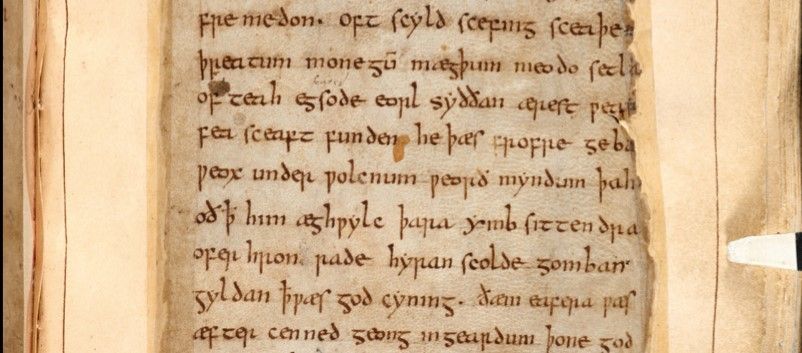 fremedon. oft scyld scefing sceaþe
þreatum monegū mægþum meodo setla
of teah egsode eorl syððan ærest ƿear
fea sceaft funden he þæs frofre geba
ƿeox under ƿolcnum ƿeorð myndum þah
oð ꝥ him æghƿylc þara ymb sittendra
ofer hron rade hyran scolde gomban
gyldan ꝥ ƿæs god cyning. ðæm eafera ƿæs
æfter cenned geong in geardum þone god